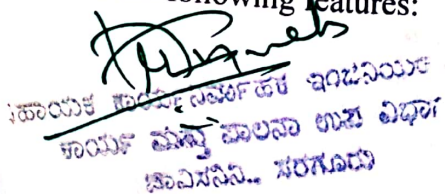 ollowing features:
ಸಹಾಯಕ ಕಾರ್ಯನಿರ್ವಾಹಕ ಇಂಜಿನಿಯರ
ಕಾರ್ಯ ಮತ್ತು ಪಾಲನಾ ಉಪ ವಿಭಾಗ
ಚಾವಿಸನಿನಿ., ಸರಗೂರು